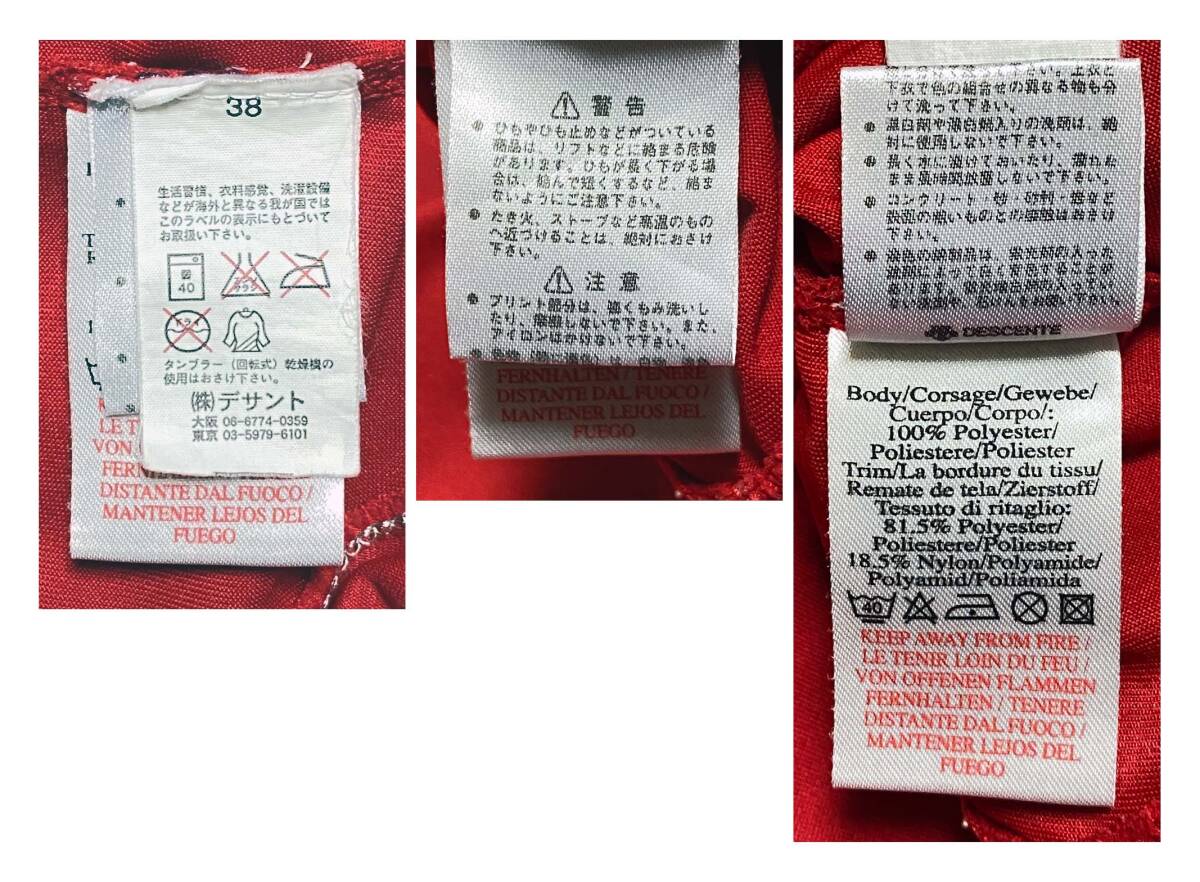 38
生活習慣、衣料感覚、洗濯設備
などが海外と異なる我が国では
このラベルの表示にもとづいて
お取扱い下さい。
40
ドライ
タンブラー(回転式)乾燥機の
使用はおさけ下さい。
(株)デサント
大阪 06-6774-0359
東京 03-5979-6101
LE T
VON
FERN
DISTANTE DAL FUOCO /
MANTENER LEJOS DEL
FUEGO
警告
ひもやひも止めなどがついている
商品は、リフトなどに絡まる危険
があります。ひもが長く下がる場
合は、結んで短くするなど、絡ま
ないようにご注意下さい。
たき火、ストーブなど高温のもの
へ近づけることは、絶対におさけ
下さい。
注意
プリント部分は、強くもみ洗いし
たり、摩擦しないで下さい。また、
アイロンはかけないで下さい。
FERNHALTEN / TENERE
DISTANTE DAL FUOCO /
MANTENER LEJOS DEL
FUEGO
下衣で色の組合せの異なる物も分
けて洗って下さい。
対に使用しないで下さい。
長く水に漬けておいたり、濡れた
まま長時間放置しないで下さい。
コンクリート・砂
下さい。
DESCENTE
Body/Corsage/Gewebe/
Cuerpo/Corpo/:
100% Polyester/
Poliestere/Poliester
Trim/La bordure du tissu/
Remate de tela/Zierstoff/
Tessuto di ritaglio:
81.5% Polyester/
Poliestere/Poliester
18.5% Nylon/Polyamide/
Polyamid/Poliamida
40
KEEP AWAY FROM FIRE /
LE TENIR LOIN DU FEU /
VON OFFENEN FLAMMEN
FERNHALTEN / TENERE
DISTANTE DAL FUOCO /
MANTENER LEJOS DEL
FUEGO